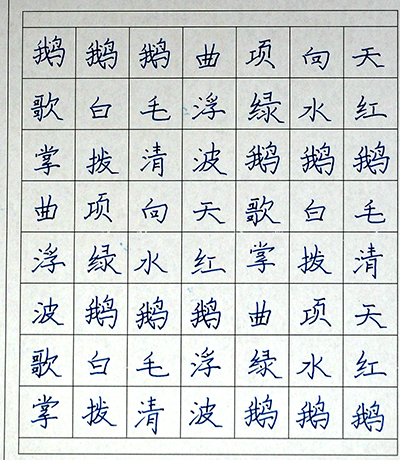 鹅鹅鹅曲项向天
歌白毛浮绿水红
掌拨清波鹅鹅鹅
曲项向天歌白毛
浮绿水红掌拨清
波鹅鹅鹅曲项天
歌白毛浮绿水红
掌拨清波鹅鹅鹅